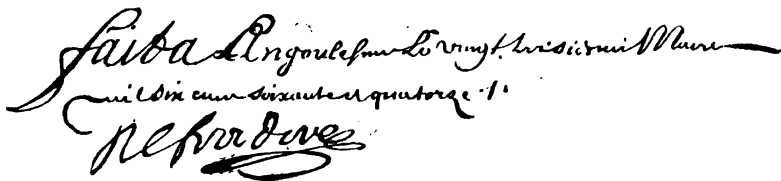 faict a Angoulesme Le vingt troisiesme Mars
mil six cens soixante et quatorze